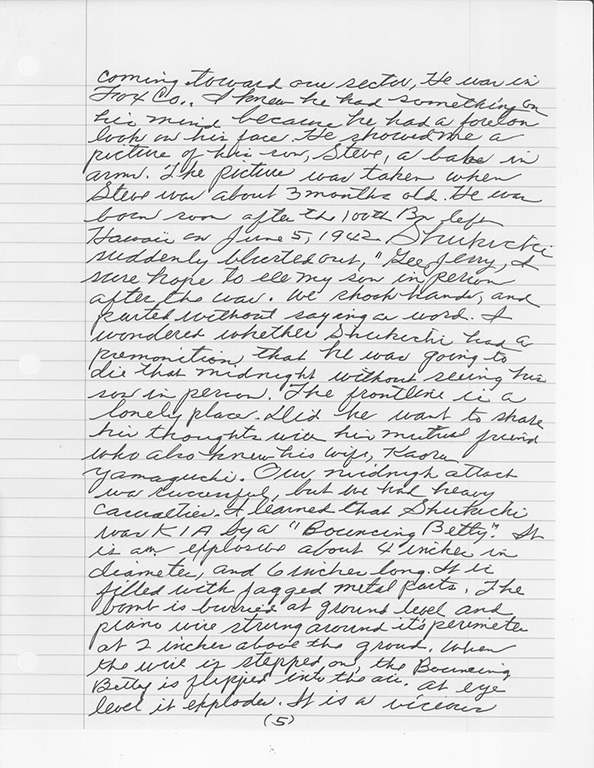 coming toward our sector, He was in
Fox Co.. I knew he had something on
his mind because he had a forelon
look on his face. He showed me a
picture of his son, Steve, a babe in
arms. The picture was taken when
Steve was about 3 months old. He was
born soon after the 100th Bn left
Hawaii on June 5, 1942. Shukichi
suddenly blurted out, "Gee Jerry, I
sure hope to see my son in person
after the war. We shook hands, and
parted without saying a word. I
wondered whether Shukichi had a
premonition, that he was going to
die that midnight without seeing his
son in person. The frontline is a
lonely place. Did he want to share
his thoughts with his mutual friend
who also knew his wife, Kaoru
Yamaguchi. Our midnigh attack
was successful, but we had heavy
casualties. I learned that Shukichi
was KIA by a "Bouncing Betty". It
is an explosive about 4 inches in
diameter, and 6 inches long. It is
filled with jagged metal parts. The
bomb is burried at ground level and
piano wire strung around it's perimeter
at 2 inches above the groud. When
the wire is stepped on, the Bouncing
Betty is flipped into the air. At eye
level it explodes. It is a viceous
(5)